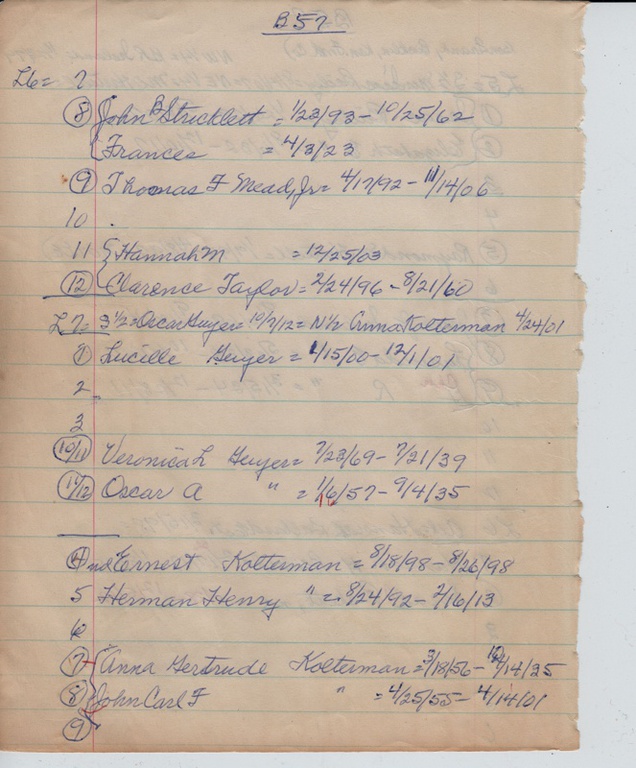 B57
L6 = ?
⑧ { John B Stricklett = 1/23/93 - 10/25/62
{ Frances = 4/3/23
⑨ Thomas F Mead, Jr = 4/17/92 - 11/14/06
10 .
11 { Hannah M = 12/25/03
⑫ { Clarence Taylor = 2/24/96 - 8/21/60
L7 = S 1/2 = Oscar Geyer = 10/7/12 = N 1/2 Anna Kolterman 4/24/01
① Lucille Geyer = 1/15/00 - 12/1/01
2 "
3
(10/11) Veronica L Geyer = 7/23/69 - 7/21/39
(11/12) Oscar A " = 1/6/57 - 9/4/35
④ Ernest Kolterman = 8/18/98 - 8/26/98
5 Herman Henry " = 8/24/92 - 2/16/13
6
⑦ { Anna Gertrude Kolterman = 3/18/56 - /14/25
⑧ { John Carl F " = 4/25/55 - 4/14/01
⑨